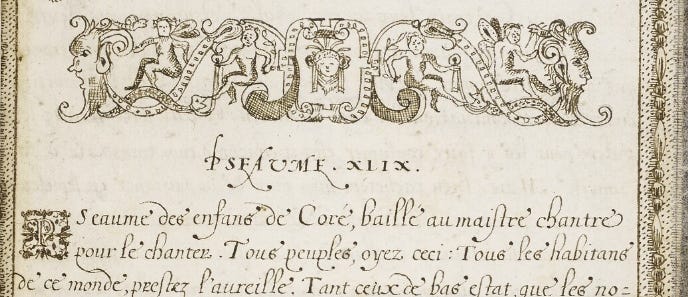 PSEAVME . XLIX .
PSeaume des enfans de Coré, baillé au maistre chantre
pour le chanter . Tous peuples, oyez ceci : Tous les habitans
de ce monde, prestez l'aureille. Tant ceux de bas estat, que les no=